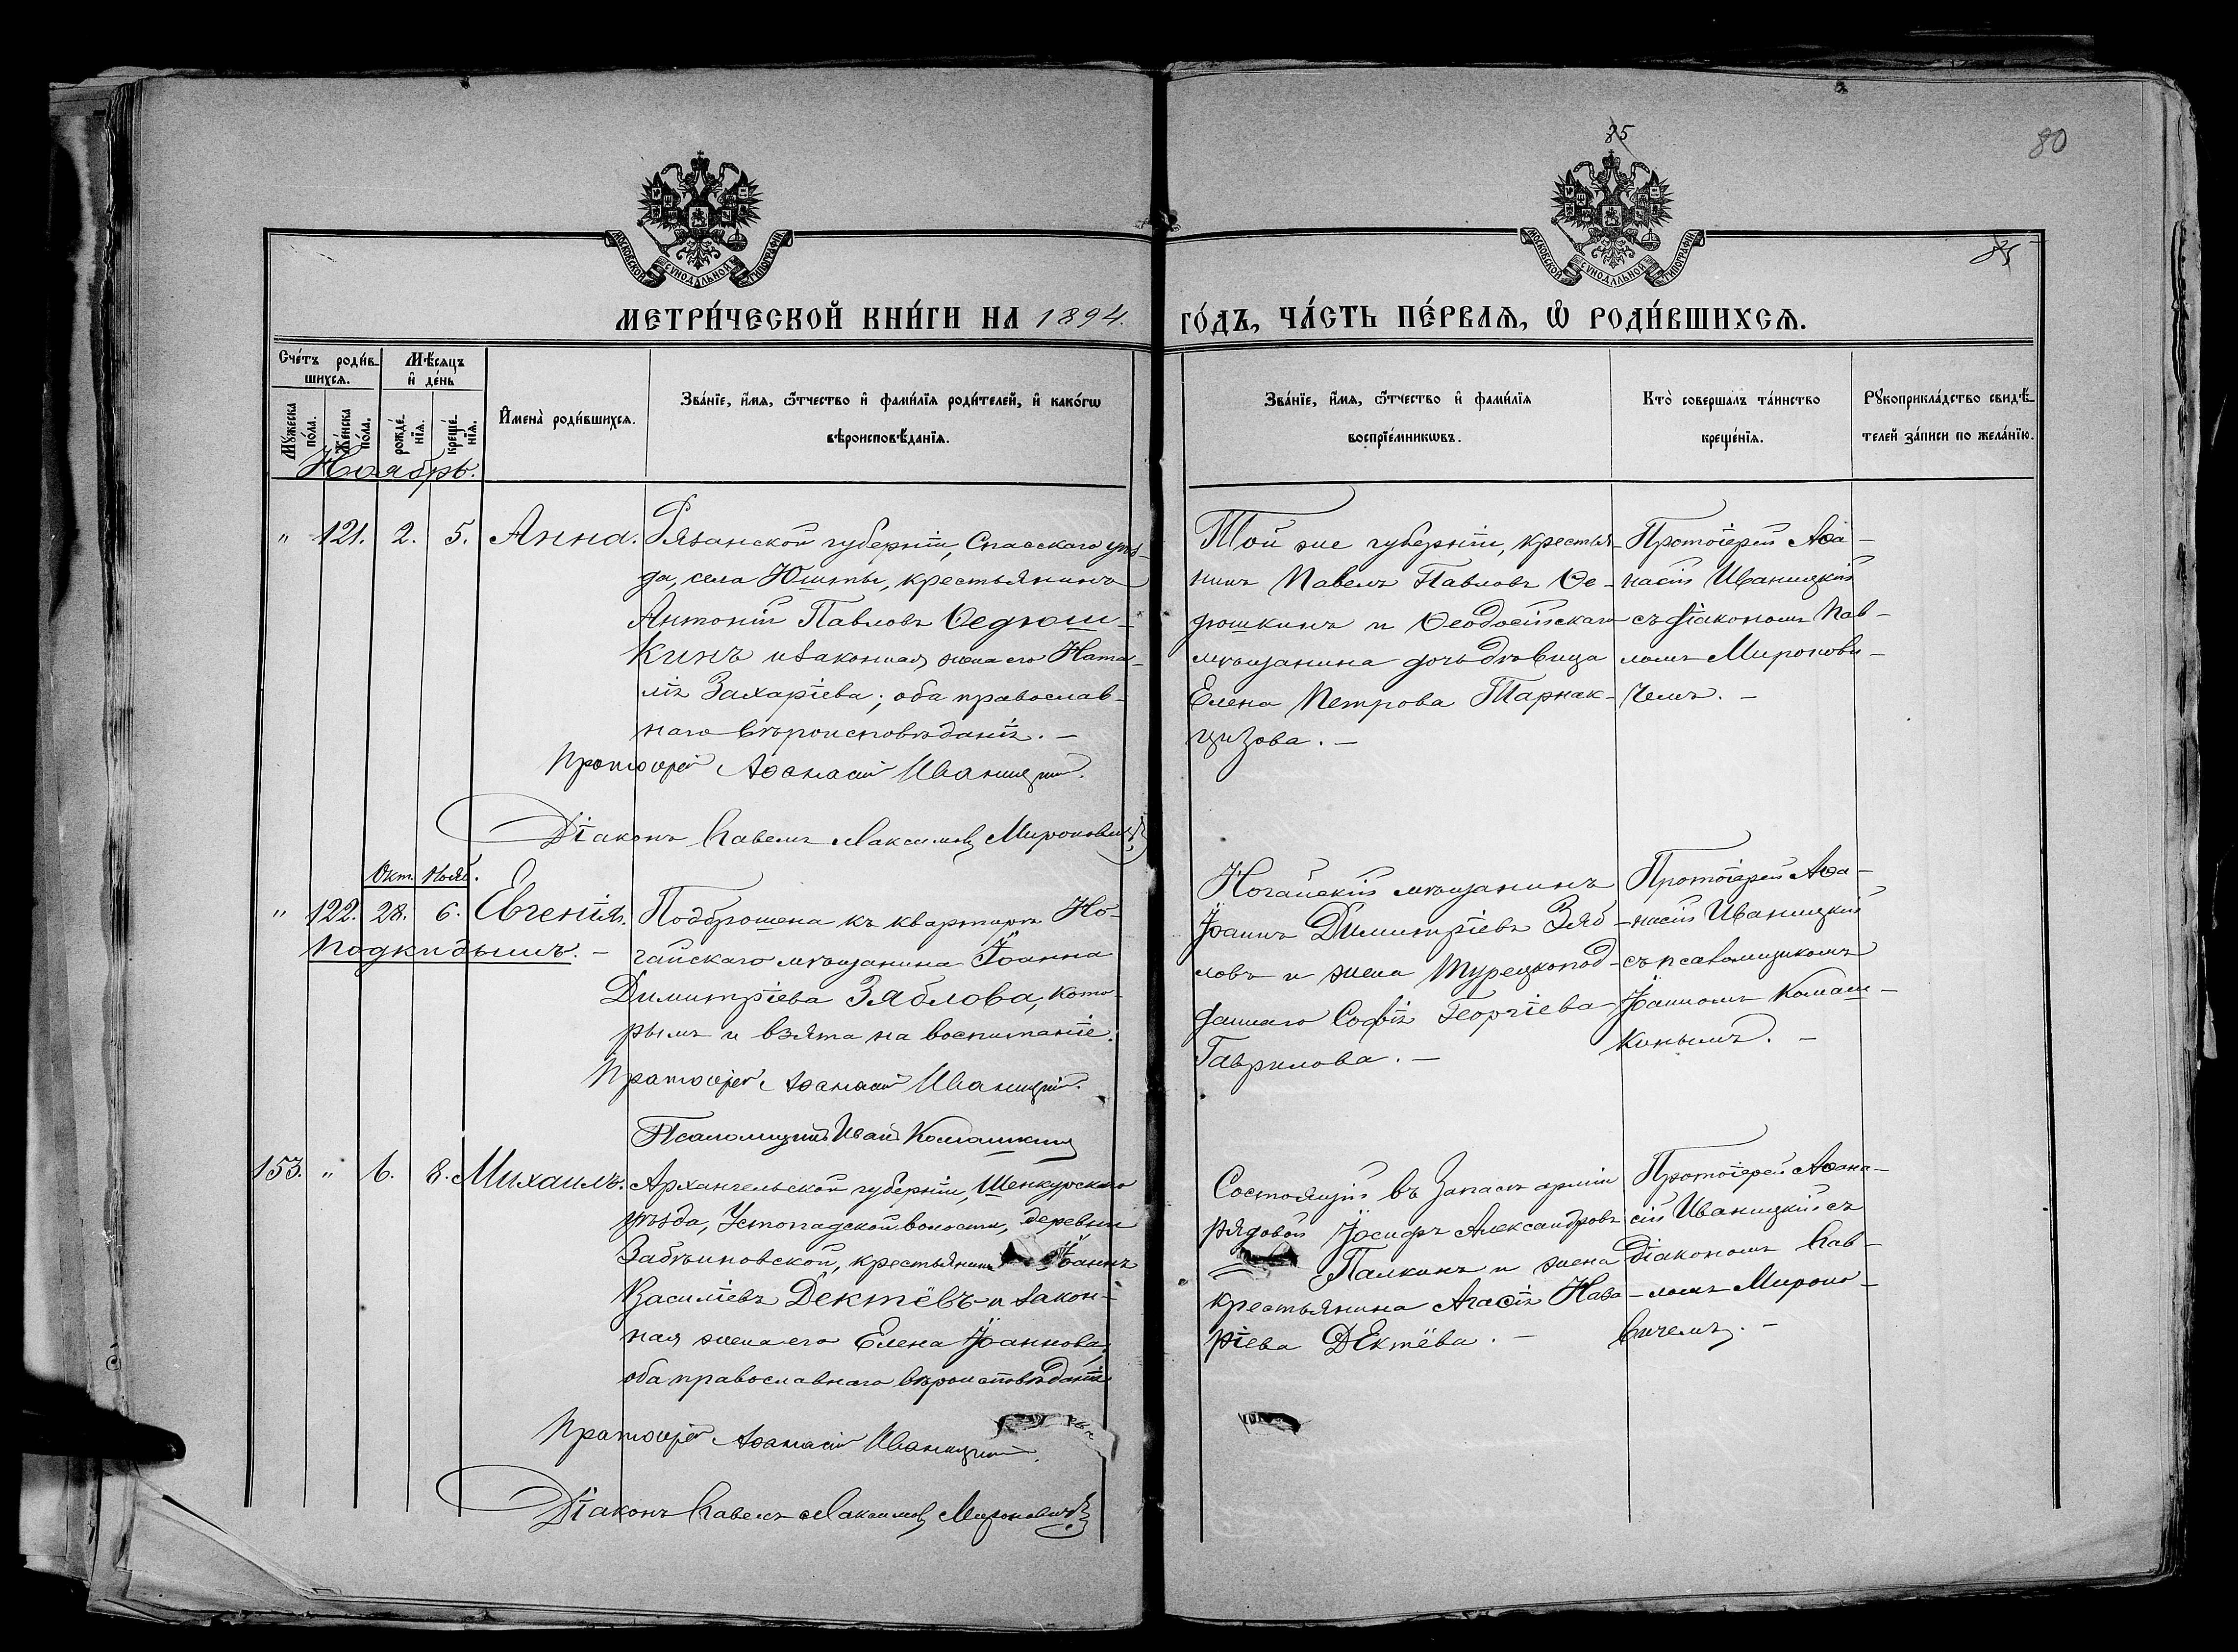 80
85
85
МОСКОВСКОЙ СУНОДАЛЬНОЙ ТИПОГРАФІИ
МОСКОВСКОЙ СУНОДАЛЬНОЙ ТИПОГРАФІИ
МЕТРИ́ЧЕСКОЙ КНИ́ГИ НА 1894.
ГО́ДЪ, ЧА́СТЬ ПЕ́РВАЯ, Ѡ РОДИ́ВШИХСЯ.
Сче́тъ роди́в-
шихся.
Мѣ́сяцъ
и҆ де́нь
Мꙋ́жеска
по́ла.
Же́нска
по́ла.
рожде́-
нїя.
креще́-
нїя.
И҆мена̀ роди́вшихся.
Зва́нїе, и҆́мя, ѻ҆́тчество и҆ фами́лїя роди́телей, и҆ како́гѡ
вѣроисповѣ́данїя.
Зва́нїе, и҆́мя, ѻ҆́тчество и҆ фами́лїя
воспрїе́мникѡвъ.
Кто̀ соверша́лъ та́инство
креще́нїя.
Рꙋкоприкла́дство свидѣ́-
телей за́писи по жела́нїю.
Ноябрь.
" 121. 2. 5. Анна.
Рязанской губерніи, Спасскаго уѣз-
да, села Юшты, крестьянинъ
Антоній Павловъ Ѳедюш-
кинъ и законная жена его Ната-
лія Захаріева; оба православ-
наго вѣроисповѣданія. –
Протоіерей Аѳанасій Иваницкій.
Діаконъ Павелъ Максимовъ Мироновичъ
Той же губерніи, крестья-
нинъ Павелъ Павловъ Ѳе-
дюшкинъ и Ѳеодосійскаго
мѣщанина дочь дѣвица
Елена Петрова Тарнак-
цизова. –
Протоіерей Аѳа-
насій Иваницкій
съ діакономъ Пав-
ломъ Миронови-
чемъ. –
Окт. Нояб.
" 122. 28. 6. Евгенія.
Подкидышъ. –
Подброшена къ квартирѣ Но-
гайскаго мѣщанина Іоанна
Димитріева Зяблова, кото-
рымъ и взята на воспитаніе.
Протоіерей Аѳанасій Иваницкій.
Псаломщикъ Иванъ Комашкинъ
Ногайскій мѣщанинъ
Іоаннъ Димитріевъ Зяб-
ловъ и жена Турецкопод-
даннаго Софія Георгіева
Гаврилова. –
Протоіерей Аѳа-
насій Иваницкій
съ псаломщикомъ
Іоанномъ Комаш-
кинымъ. –
153. " 6. 8. Михаилъ.
Архангельской губерніи, Шенкурскаго
уѣзда, Устопадской волости, деревни
крестьянинъ Іоаннъ
Василіевъ Дектёвъ и закон-
ная жена его Елена Іоаннова,
оба православнаго вѣроисповѣданія.
Протоіерей Аѳанасій Иваницкій.
Діаконъ Павелъ Максимовъ Мироновичъ
Состоящій въ запасѣ арміи
рядовой Іосифъ Александровъ
Палкинъ и жена
крестьянина Агафія Наза-
ріева Дектёва. –
Протоіерей Аѳана-
сій Иваницкій съ
діакономъ Пав-
ломъ Мироно-
вичемъ. –